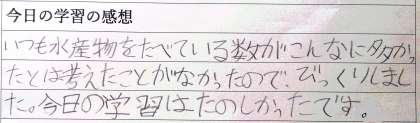 今日の学習の感想
いつも水産物をたべている数がこんなに多かっ
たとは考えたことがなかったので、びっくりしまし
た。今日の学習はたのしかったです。